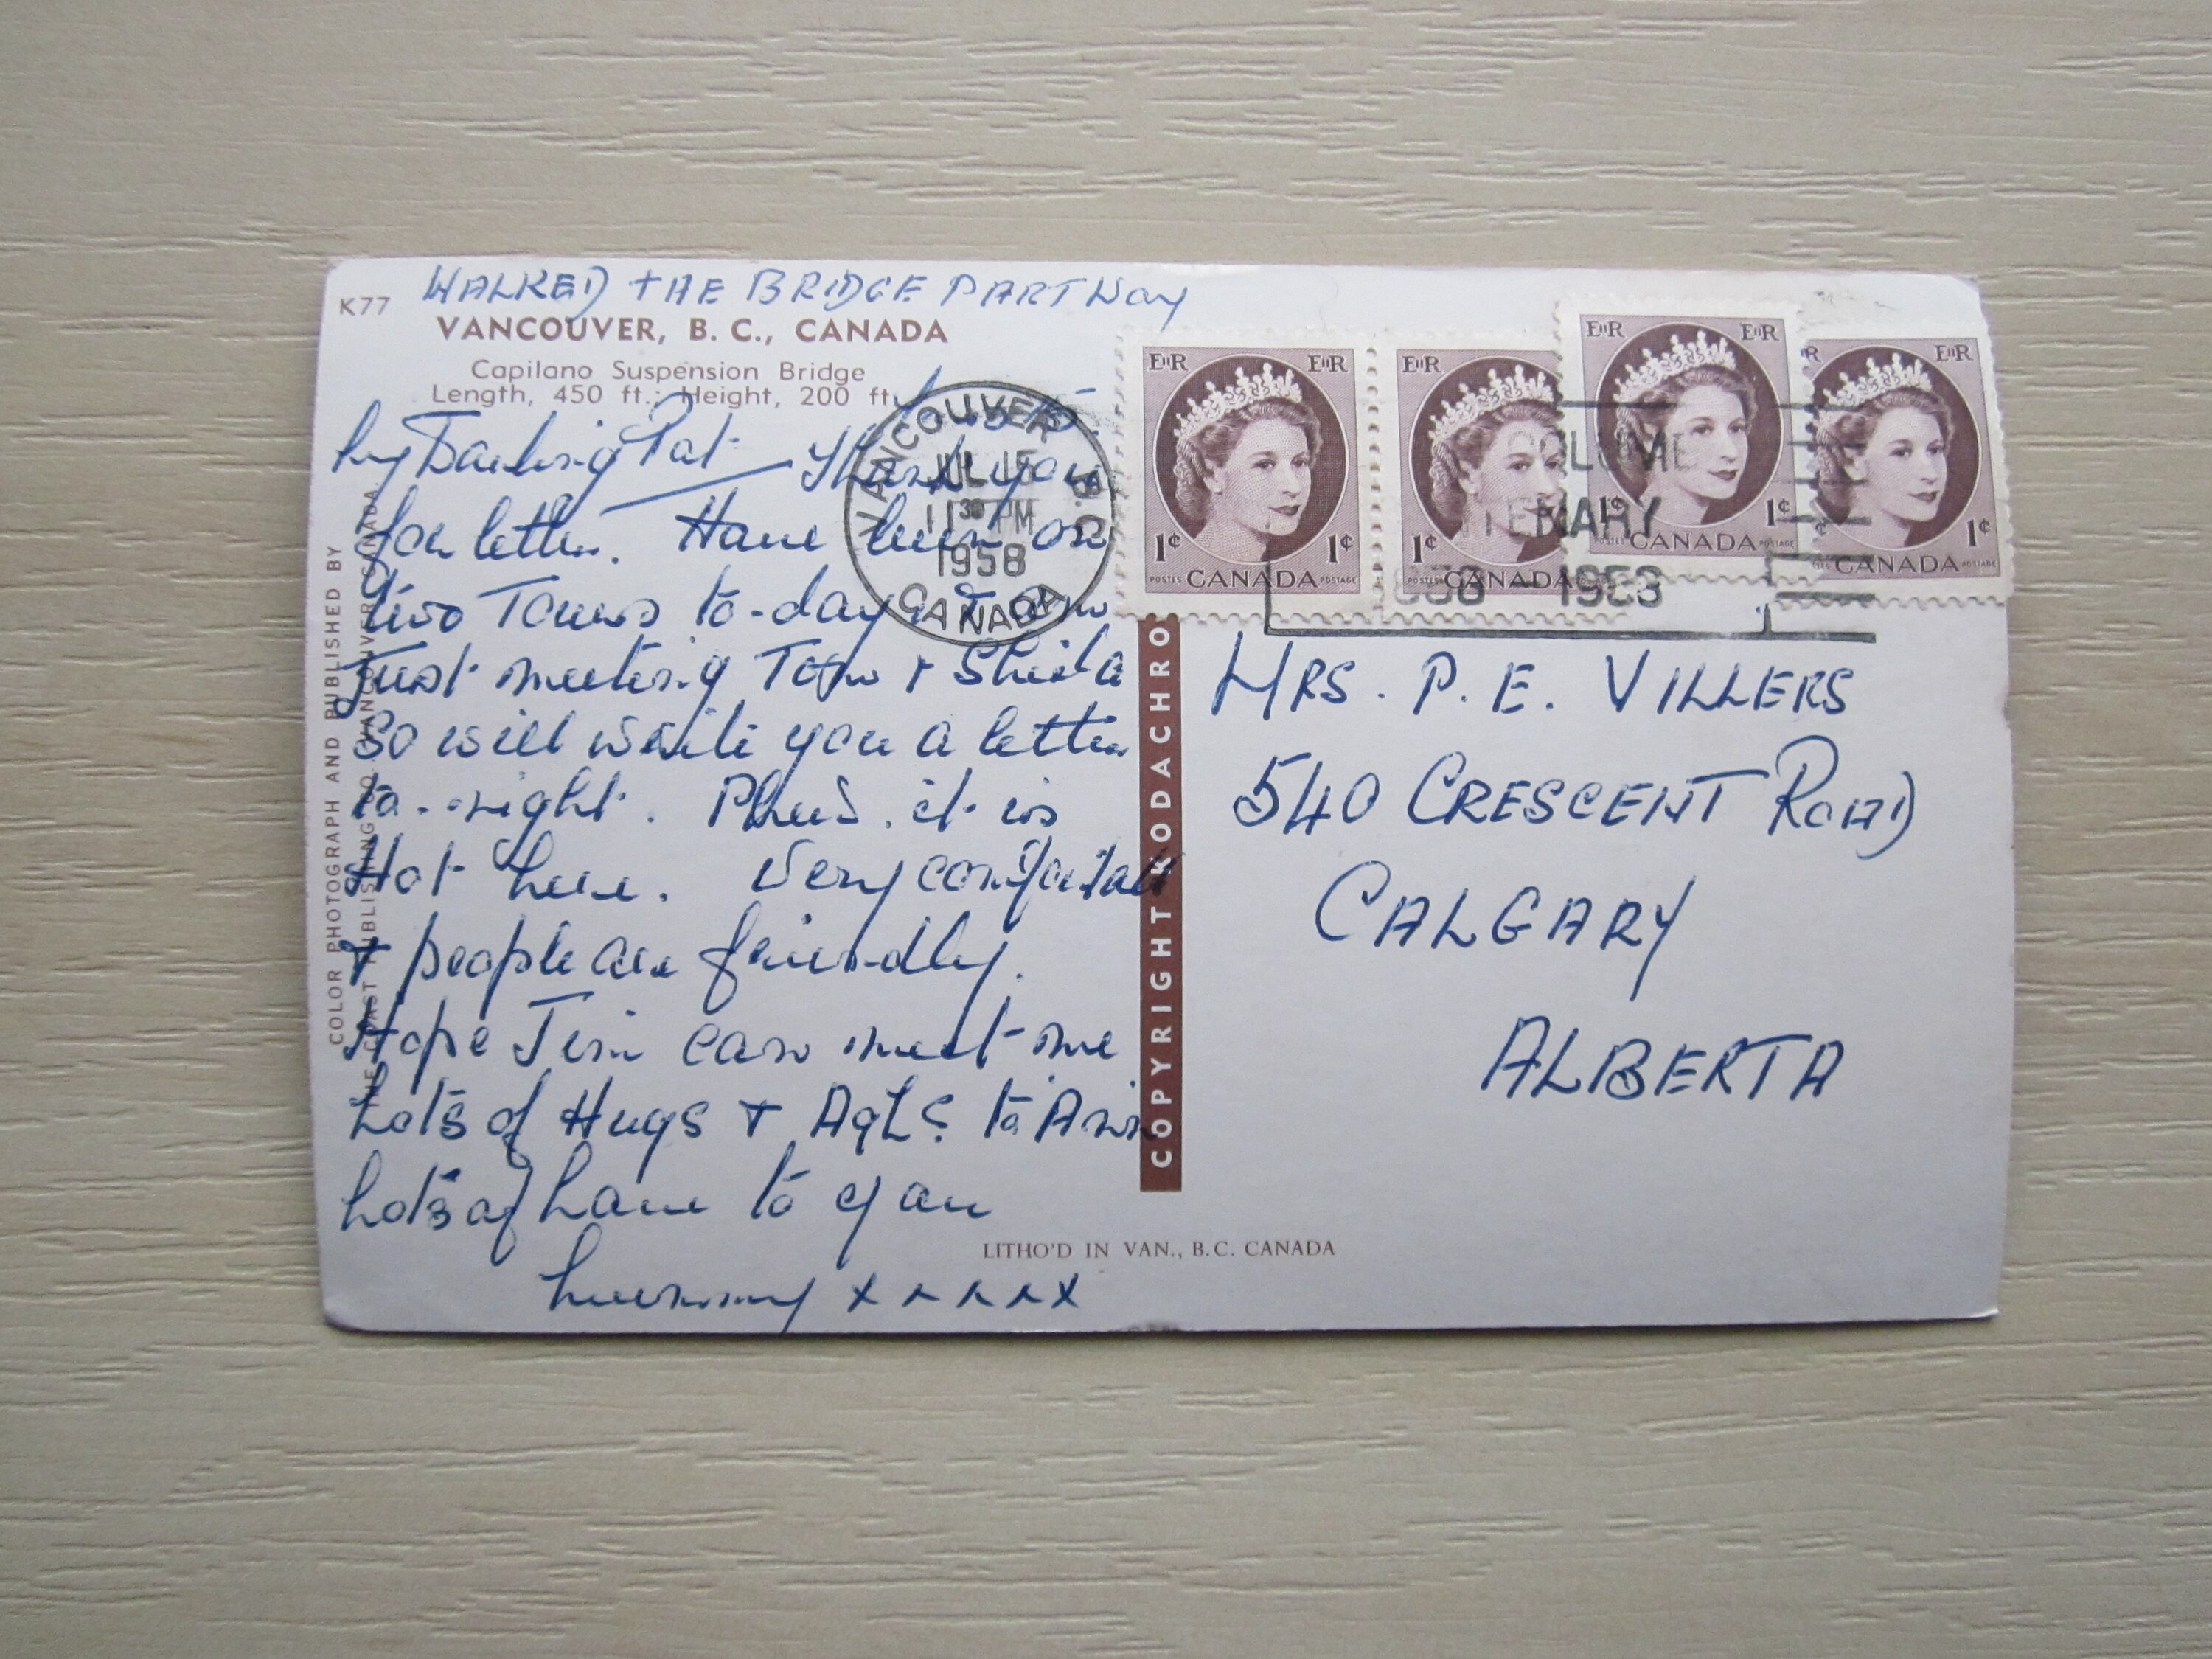 WALKED THE BRIDGE PART WAY
K77
VANCOUVER, B. C., CANADA
Capilano Suspension Bridge
Length, 450 ft.; Height, 200 ft.
My Darling Pat - Thank you
for letter. Have been on
two Tours to-day & am
Just meeting Tom & Sheila
So will write you a letter
to-night. it is
Hot here. Very comfortable
& people are friendly.
Hope Jim can meet me
Lots of Hugs & to Ann
Lots of Love to you
Mummy x x x x x
COLOR PHOTOGRAPH AND PUBLISHED BY
THE COAST PUBLISHING CO. VANCOUVER, CANADA.
VANCOUVER B.C.
JUL 15
11 30 PM
1958
CANADA
EIIR EIIR
1¢ 1¢
POSTES CANADA POSTAGE
EIIR
1¢
POSTES CANADA
EIIR EIIR
1¢ 1¢
POSTES CANADA POSTAGE
R EIIR
¢ 1¢
CANADA POSTAGE
COLUMB
TENARY
1958
COPYRIGHT KODACHRO
MRS. P. E. VILLERS
540 CRESCENT ROAD
CALGARY
ALBERTA
LITHO'D IN VAN., B.C. CANADA